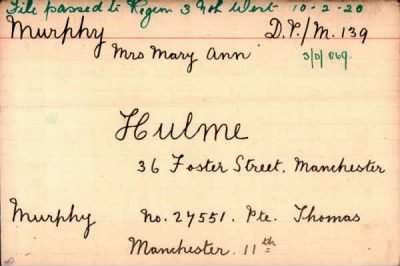 File passed to Region 3 Noh West 10-2-20
Murphy D.P./M. 139
Mrs Mary Ann 3/D/869.
Hulme
36 Foster Street, Manchester
Murphy No. 27551. Pte. Thomas
Manchester. 11th